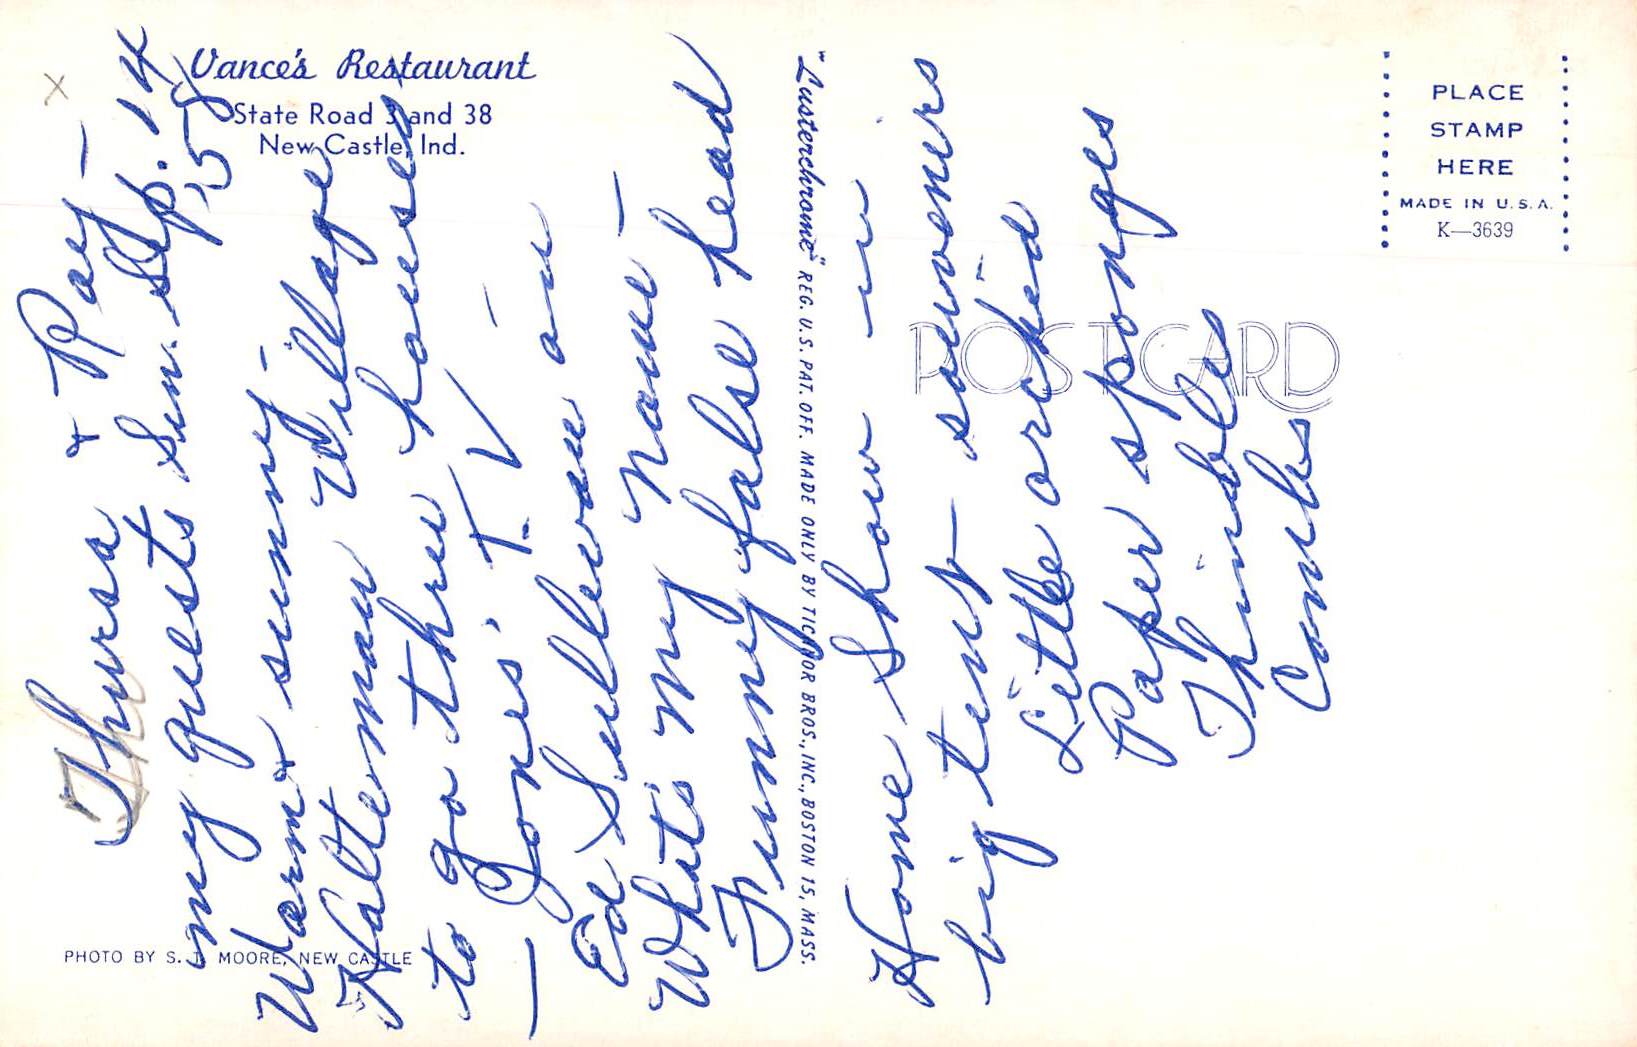 Vance's Restaurant
State Road 3 and 38
New Castle, Ind.
PHOTO BY S. T. MOORE, NEW CASTLE
"Lusterchrome" REG. U.S. PAT. OFF. MADE ONLY BY TICHNOR BROS., INC., BOSTON 15, MASS.
POST CARD
PLACE
STAMP
HERE
MADE IN U.S.A.
K—3639
x
Thursa & Ray —
my guests Sun. Sep. 14
58
Warm & sunny —
Halteman Village
to go thru houses
— Jones' T.V — on
Ed Sullivan
What's My Name —
Funny false head
Home Show in
big tent — souveners
Little orchid
Paper sponges
Thimbles
Combs